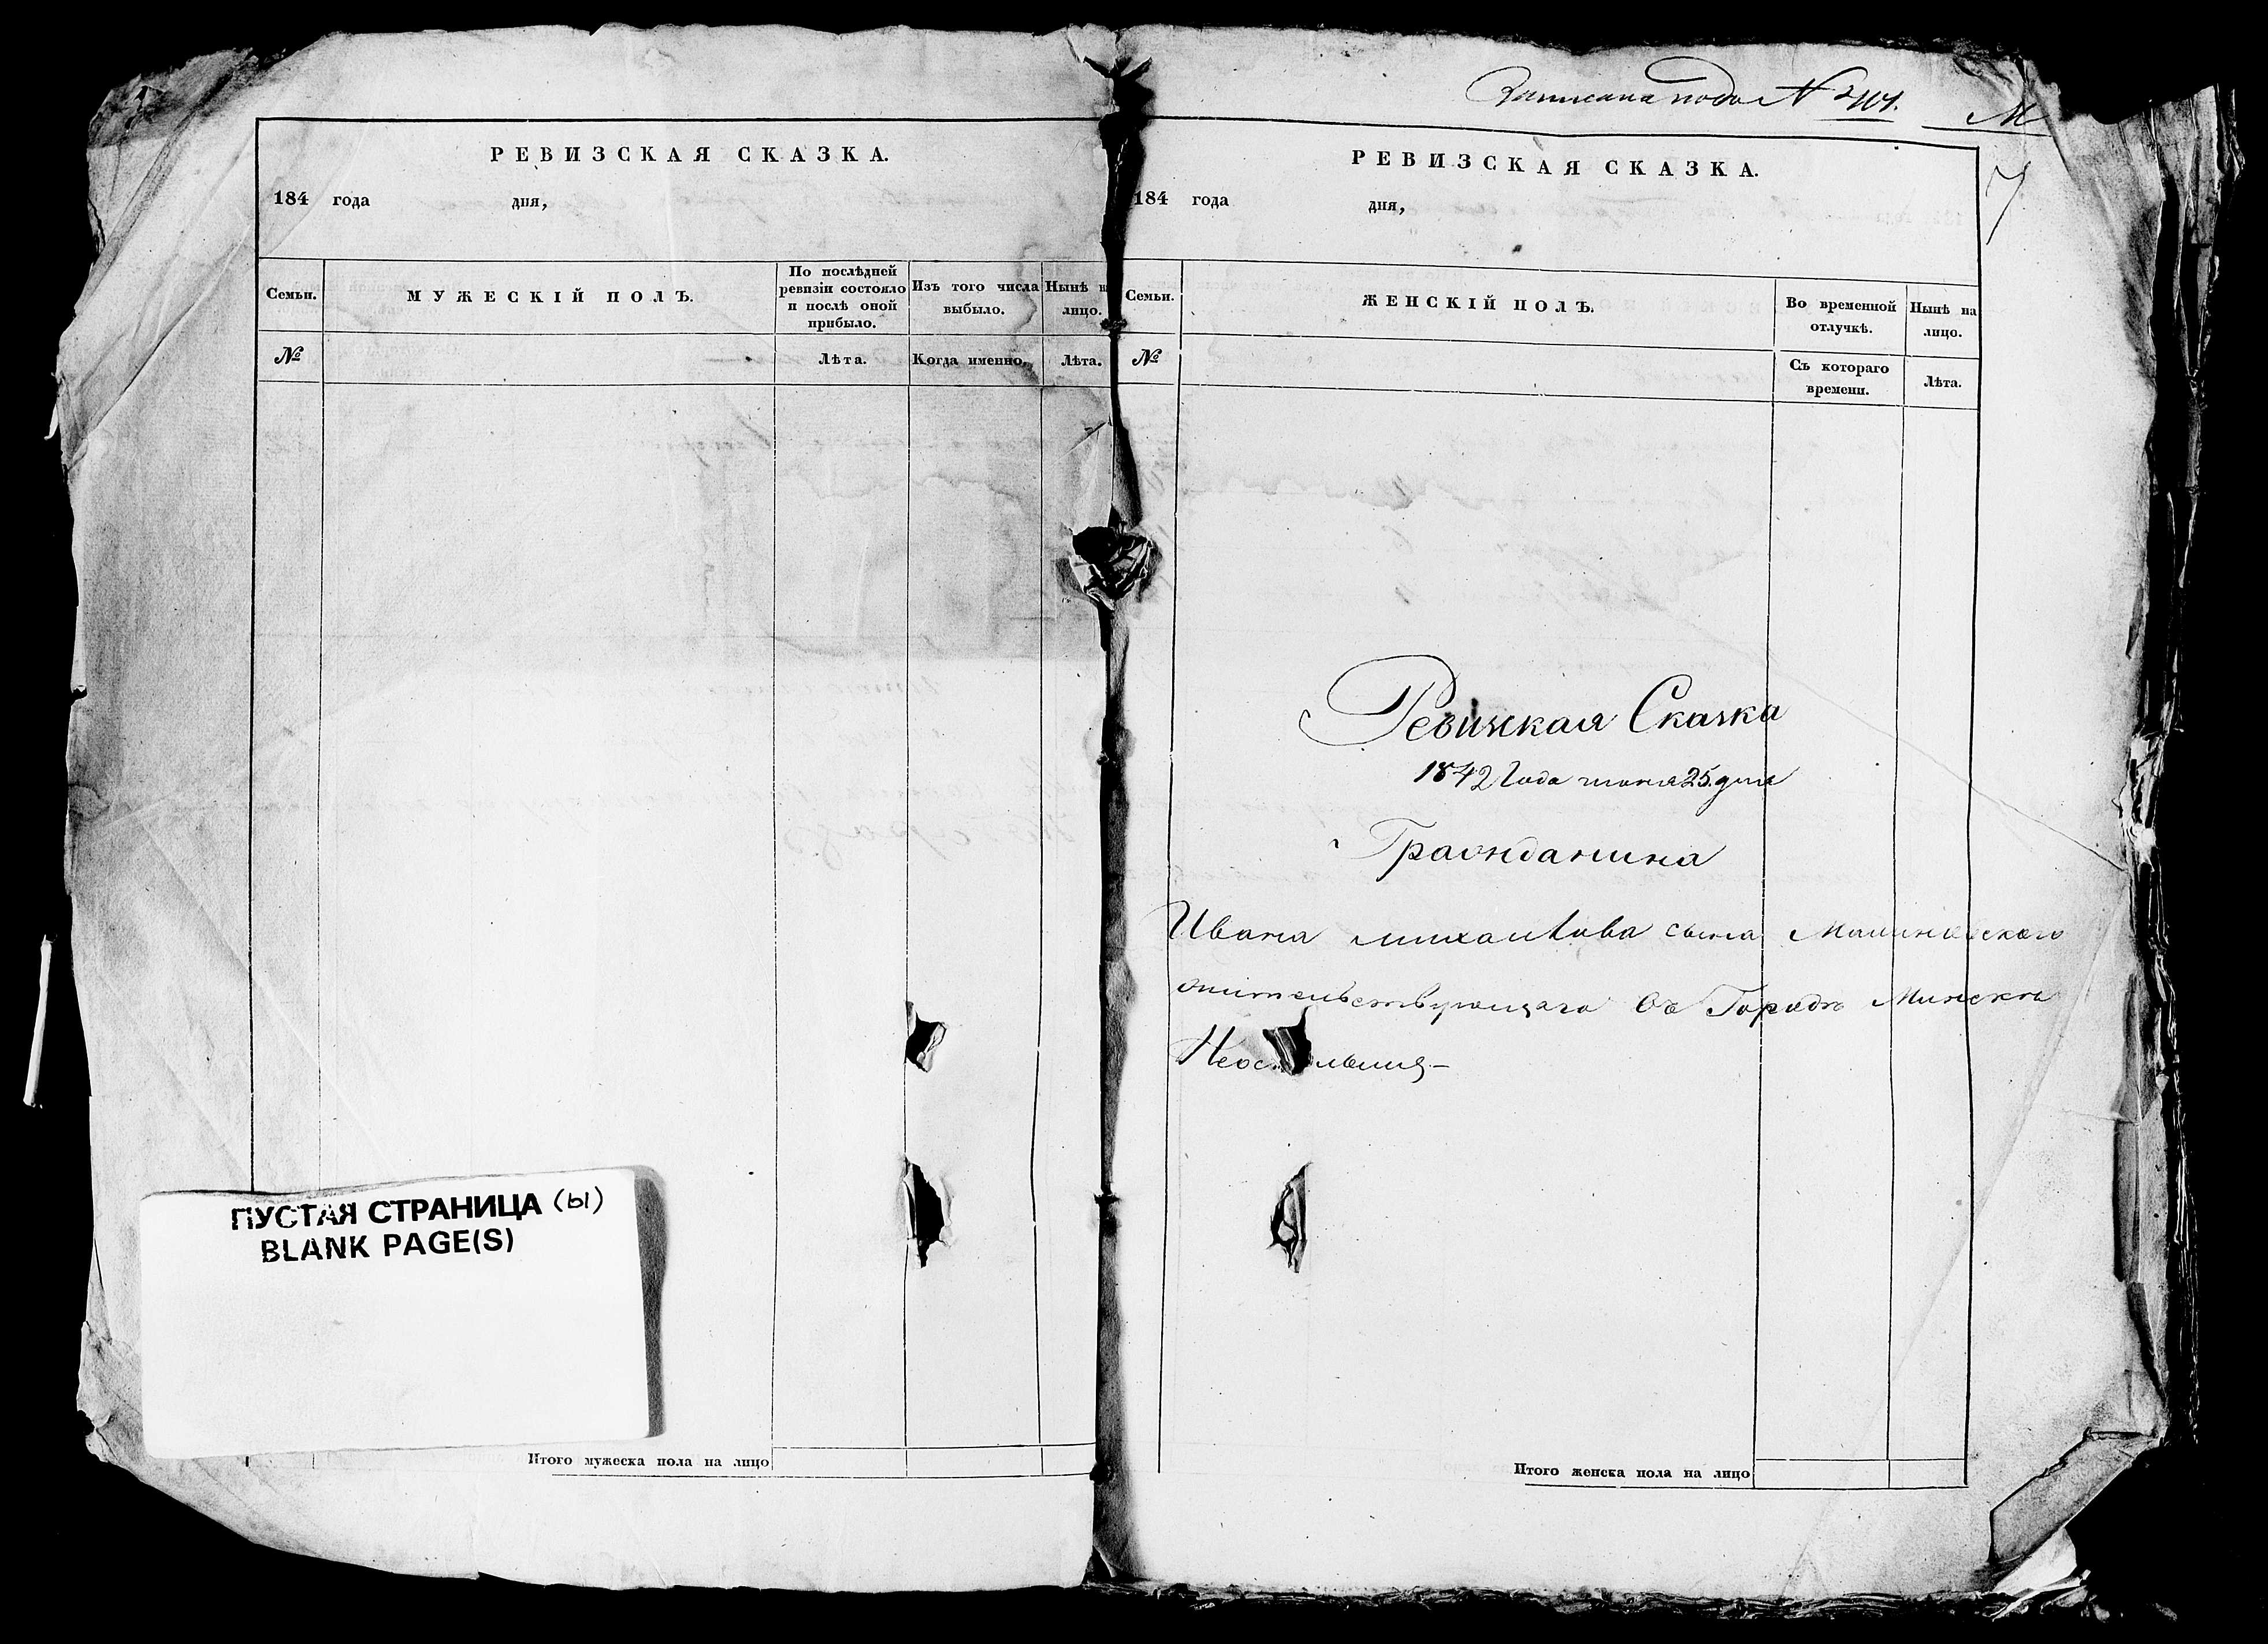 РЕВИЗСКАЯ СКАЗКА.
184 года дня,
Семьи. МУЖЕСКІЙ ПОЛЪ. По послѣдней ревизіи состояло и послѣ оной прибыло. Изъ того числа выбыло. Нынѣ на лицо.
№ Лѣта. Когда именно. Лѣта.
ПУСТАЯ СТРАНИЦА (Ы)
BLANK PAGE(S)
Итого мужеска пола на лицо
Записана подъ №
М
7
РЕВИЗСКАЯ СКАЗКА.
184 года дня,
Семьи. ЖЕНСКІЙ ПОЛЪ. Во временной отлучкѣ. Нынѣ на лицо.
№ Съ котораго времени. Лѣта.
Ревизкая Сказка
1842 Года июня 25 дня
Гражданина
Ивана михаилова сына
жительствующаго Въ Городѣ Минскѣ
Итого женска пола на лицо